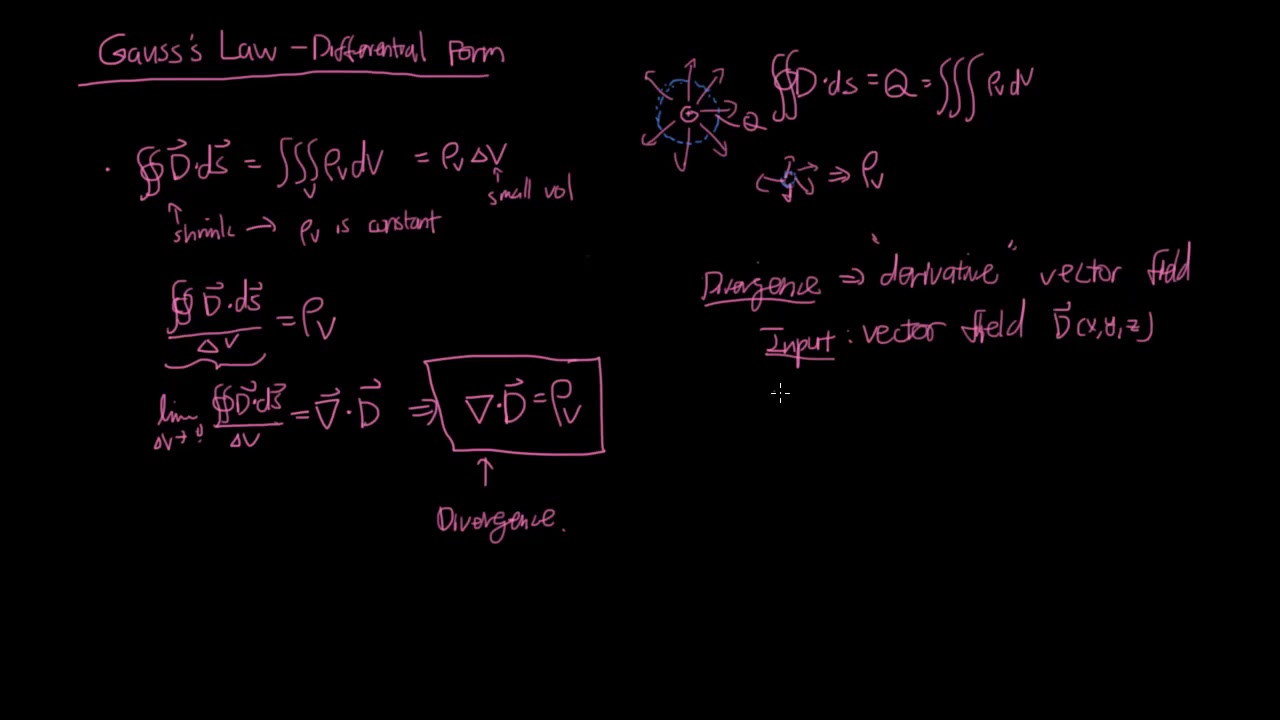 Gauss's Law – Differential Form
∯ D⃗·ds⃗ = ∭_V ρ_v dV = ρ_v ΔV
small vol
shrink → ρ_v is constant
∯ D⃗·ds⃗ / ΔV = ρ_v
lim ΔV→0 ∯ D⃗·ds⃗ / ΔV = ∇⃗·D⃗ ⇒ ∇·D⃗ = ρ_v
Divergence.
Q
∯ D·ds = Q = ∭ ρ_v dV
⇒ ρ_v
Divergence ⇒ "derivative" vector field
Input : vector field D⃗(x,y,z)